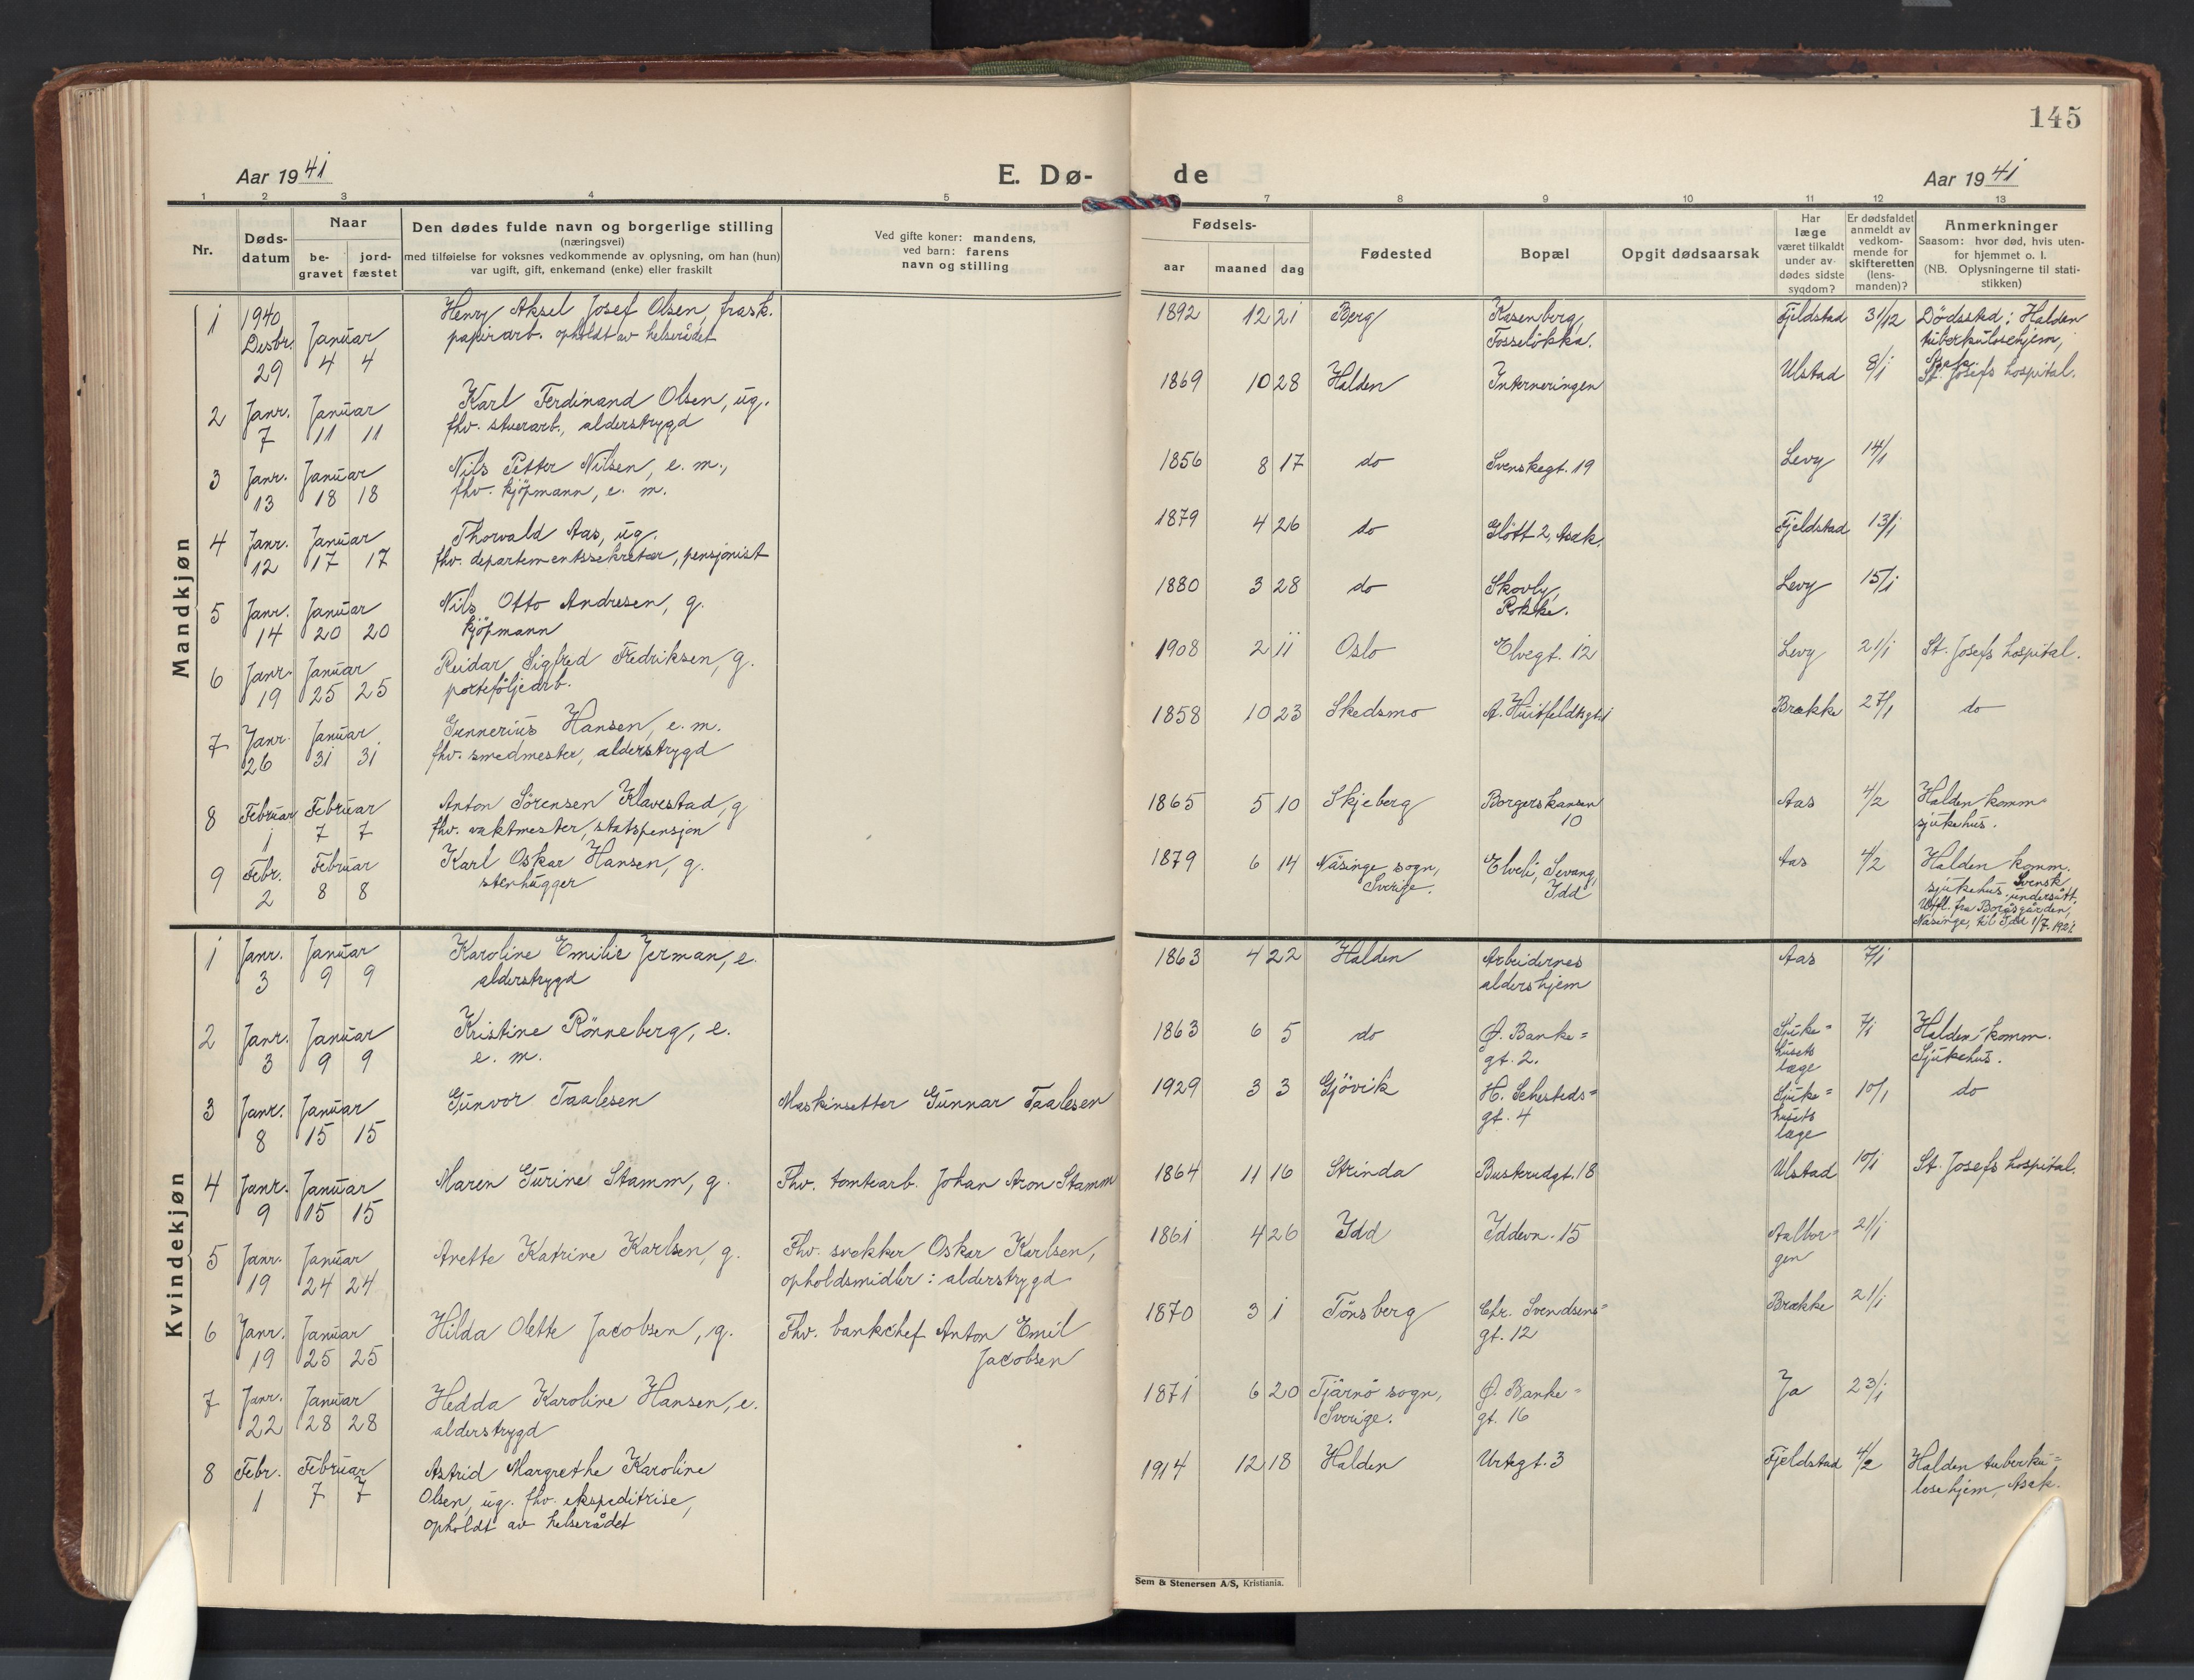 145
Aar 1941
E. Dø-
de
Aar 1941
1 2 3 4 5 7 8 9 10 11 12 13
Nr.
Døds-
datum
Naar
be-
gravet
jord-
fæstet
Den dødes fulde navn og borgerlige stilling
(næringsvei)
med tilføielse for voksnes vedkommende av oplysning, om han (hun)
var ugift, gift, enkemand (enke) eller fraskilt
Ved gifte koner: mandens,
ved barn: farens
navn og stilling
Fødsels-
aar maaned dag
Fødested
Bopæl
Opgit dødsaarsak
Har
læge
været tilkaldt
under av-
dødes sidste
sygdom?
Er dødsfaldet
anmeldt av
vedkom-
mende for
skifteretten
(lens-
manden)?
Anmerkninger
Saasom: hvor død, hvis uten-
for hjemmet o. l.
(NB. Oplysningerne til stati-
stikken)
Mandkjøn
1 1940 Henry Aksel Josef Olsen, frask. 1892 12 21 Berg Fjeldstad 31/12 Dödssted: Halden
Desbr. Januar papirarb. opholdt av helserådet Fosselökka. tuberkulosehjem,
29 4 4 Asak.
2 Janr. Januar Karl Ferdinand Olsen, ug. 1869 10 28 Halden Interneringen Ulstad 8/1 St. Josefs hospital.
7 11 11 fhv. stuerarb., alderstrygd
3 Janr. Januar Nils Petter Nilsen, e. m., 1856 8 17 do Svenskegt. 19 Levy 14/1
13 18 18 fhv. kjöpmann, e. m.
4 Janr. Januar Thorvald Aas, ug. 1879 4 26 do Glött 2, Asak. Fjeldstad 13/1
12 17 17 fhv. departementssekretær, pensjonist
5 Janr. Januar Nils Otto Andresen, g. 1880 3 28 do Skovly, Levy 15/1
14 20 20 kjöpmann Rokke.
6 Janr. Januar Reidar Sigfred Fredriksen, g. 1908 2 11 Oslo Elvegt. 12 Levy 21/1 St. Josefs hospital.
19 25 25 porteföljearb.
7 Janr. Januar Gunnerius Hansen, e. m. 1858 10 23 Skedsmo A. Huitfeldtsgt. 1 Brække 27/1 do
26 31 31 fhv. smedmester, alderstrygd
8 Februar Februar Anton Sörensen Klavestad, g 1865 5 10 Skjeberg Borgerskansen Aas 4/2 Halden komm.
1 7 7 fhv. vaktmester, statspensjon 10 sjukehus.
9 Febr. Februar Karl Oskar Hansen, g. 1879 6 14 Näsinge sogn, Elveli, Sevang, Aas 4/2 Halden komm.
2 8 8 stenhugger Sverige. Idd sjukehus. Svensk
undersått.
Utfl. fra Boråsgården,
Näsinge, til Idd 1/7-
Kvindekjøn
1 Janr. Januar Karoline Emilie Jerman, e. 1863 4 22 Halden Arbeidernes Aas 7/1
3 9 9 alderstrygd aldershjem
2 Janr. Januar Kristine Rönneberg, e. 1863 6 5 do O. Banke= Sjuke= 7/1 Halden komm.
3 9 9 e. m. gt. 2. husets Sjukehus.
læge
3 Janr. Januar Gunvor Taalesen Maskinsetter Gunnar Taalesen 1929 3 3 Gjövik H. Sehesteds= Sjuke= 10/1 do
8 15 15 gt. 4 husets
læge
4 Janr. Januar Maren Gurine Stamm, g. Fhv. tomtearb. Johan Aron Stamm 1864 11 16 Strinda Buskrudgt. 18 Ulstad 10/1 St. Josefs hospital.
9 15 15
5 Janr. Januar Anette Katrine Karlsen, g. Fhv. snekker Oskar Karlsen, 1861 4 26 Idd Iddevn. 15 Aalbor= 21/1
19 24 24 opholdsmidler: alderstrygd gen
6 Janr. Januar Hilda Olette Jacobsen, g. Fhv. bankchef Anton Emil 1870 3 1 Tönsberg Chr. Svendsens= Brække 21/1
19 25 25 Jacobsen gt. 12
7 Janr. Januar Hedda Karoline Hansen, e. 1871 6 20 Tjärnö sogn, O. Banke= Ja 23/1
22 28 28 alderstrygd Sverige. gt. 16
8 Febr. Februar Astrid Margrethe Karoline 1914 12 18 Halden Urtegt. 3 Fjeldstad 4/2 Halden tuberku=
1 7 7 Olsen, ug. fhv. ekspeditrise, losehjem, Asak.
opholdt av helserådet
Sem & Stenersen A/S, Kristiania.